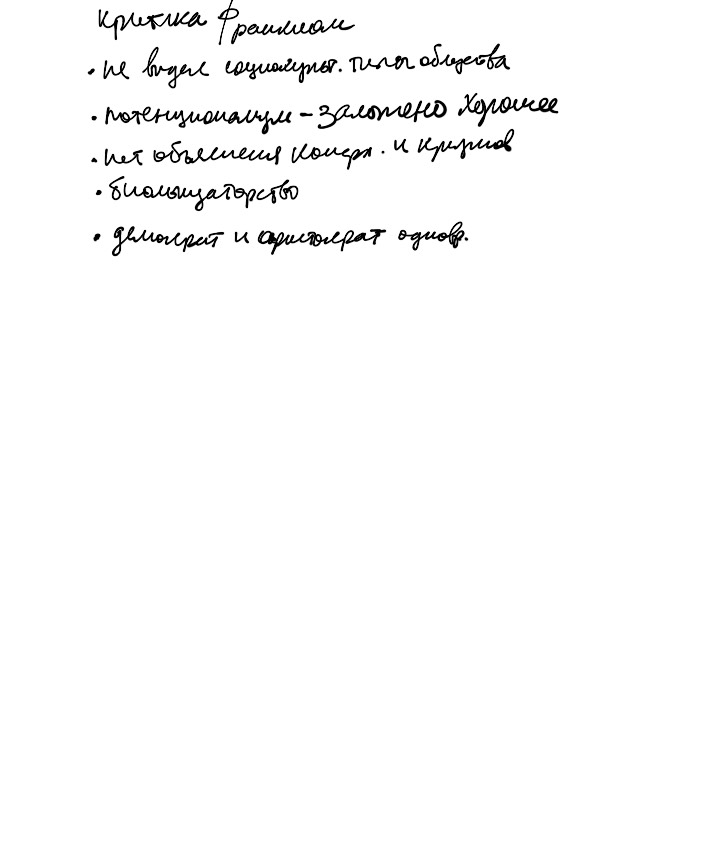 критика Франклом
• не видел социокульт. типы общества
• потенциализм – заложено хорошее
• нет объяснения конфл. и кризисов
• биологизаторство
• демократ и аристократ одновр.